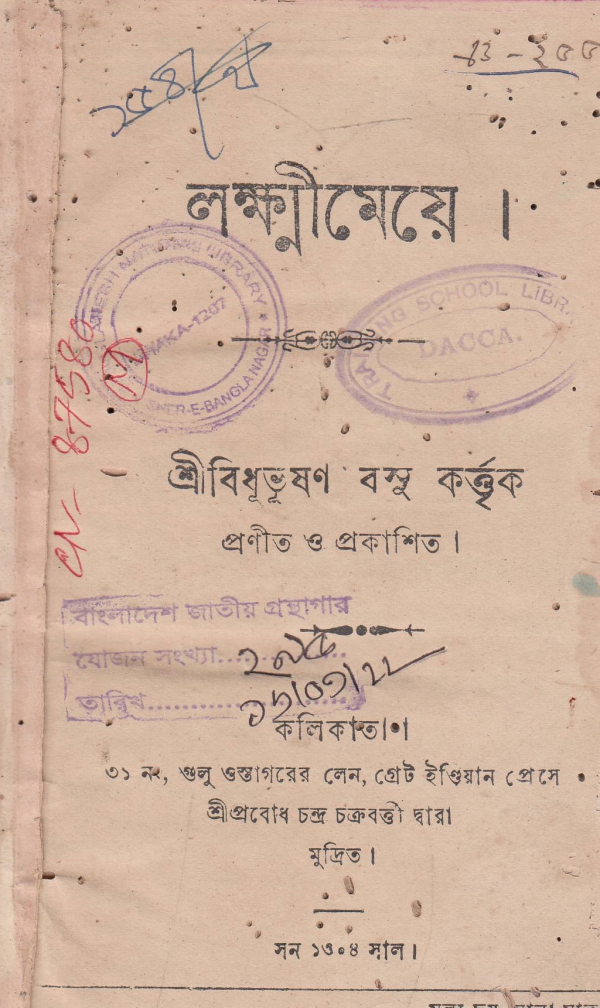 লক্ষ্মীমেয়ে ।
LIBRARY
DHAKA-1207
SHER-E-BANGLA NAGAR
TRAINING SCHOOL LIBR
DACCA.
87580
শ্রীবিধূভূষণ বসু কর্ত্তৃক
প্রণীত ও প্রকাশিত ।
বাংলাদেশ জাতীয় গ্রন্থাগার
যোজন সংখ্যা
তারিখ
কলিকাতা।
৩১ নং, গুলু ওস্তাগরের লেন, গ্রেট ইণ্ডিয়ান প্রেসে
শ্রীপ্রবোধ চন্দ্র চক্রবর্ত্তী দ্বারা
মুদ্রিত ।
সন ১৩০৪ সাল ।